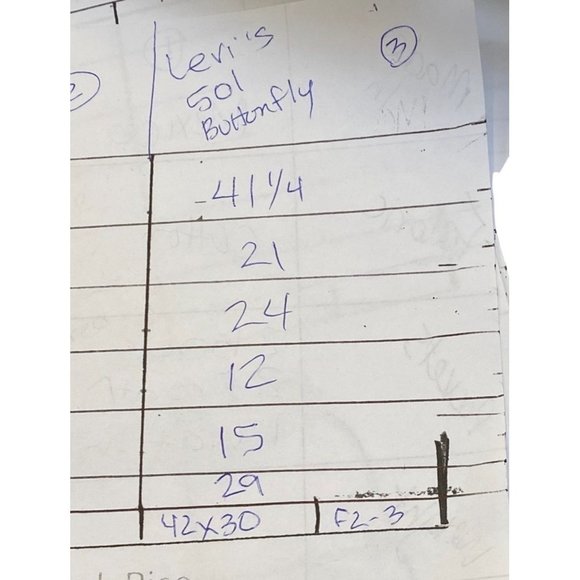 Levi's
501
Buttonfly
3
2
41 1/4
21
24
12
15
29
42x30
F2-3